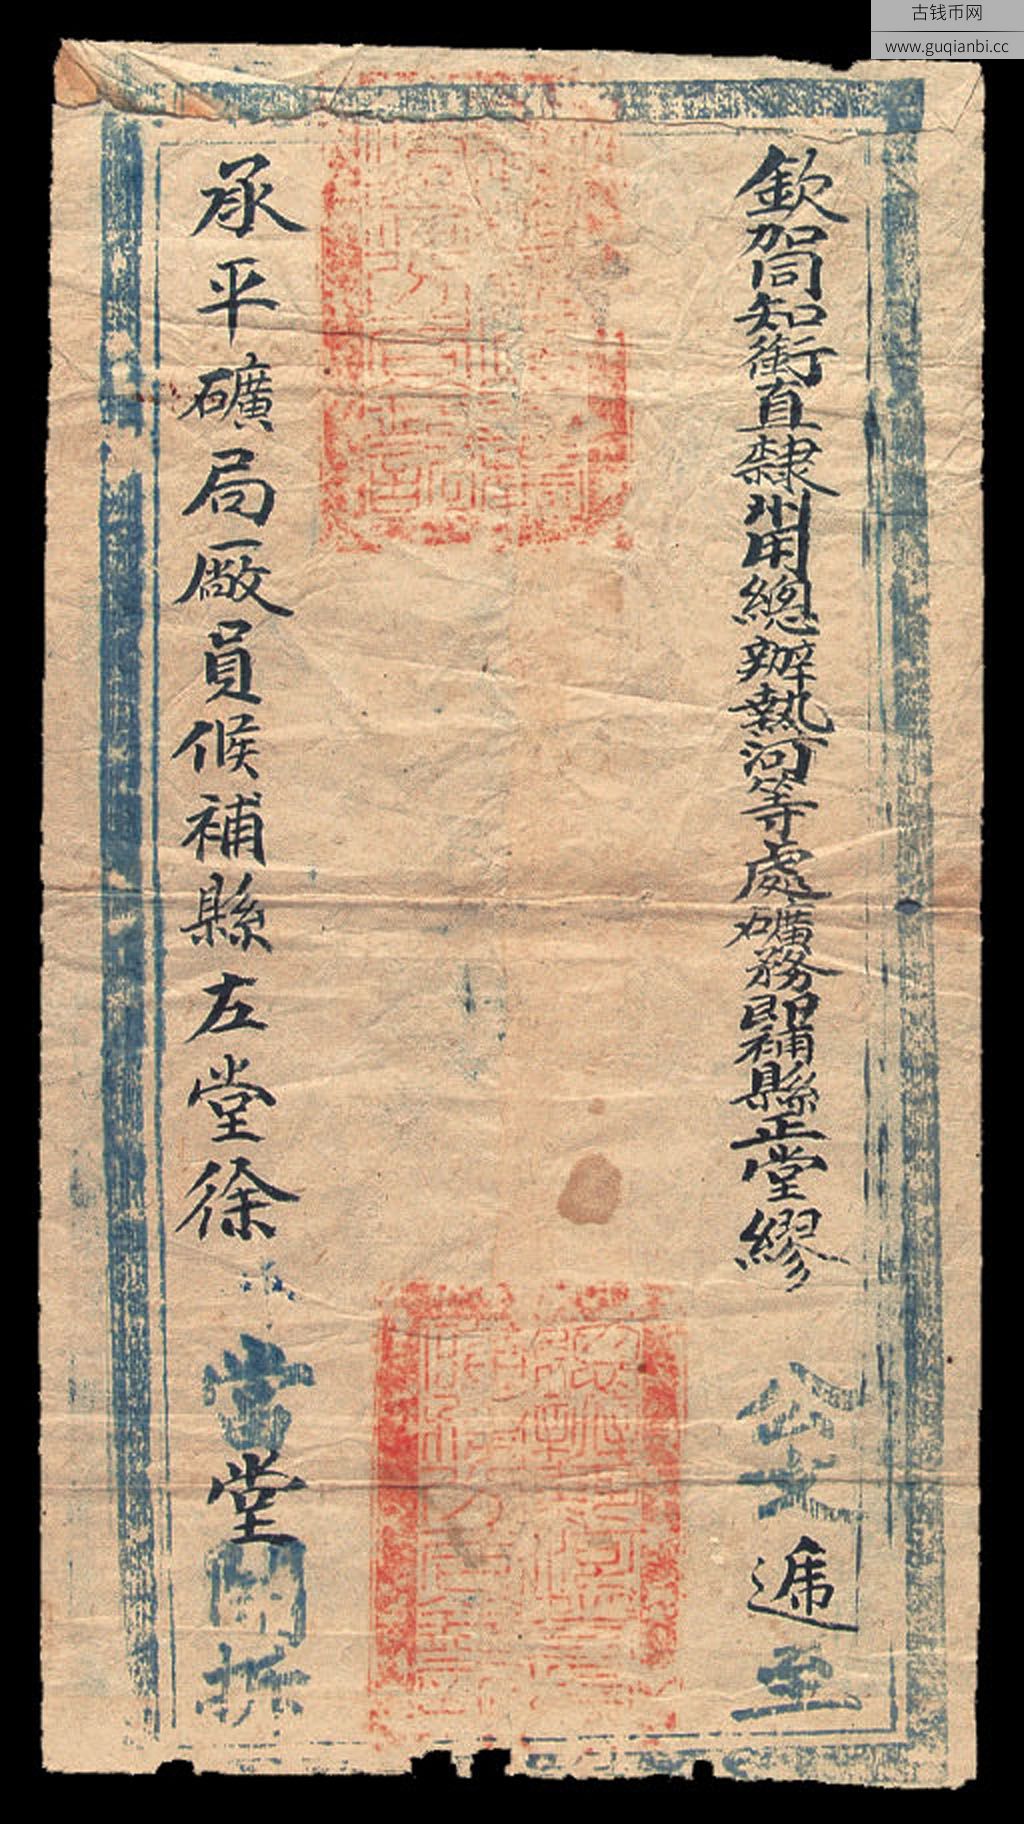 古钱币网
www.guqianbi.cc
欽加同知銜直隸州用總辦熱河等處礦務即補縣正堂繆 公文遞至
承平礦局廠員候補縣左堂徐 當堂開拆